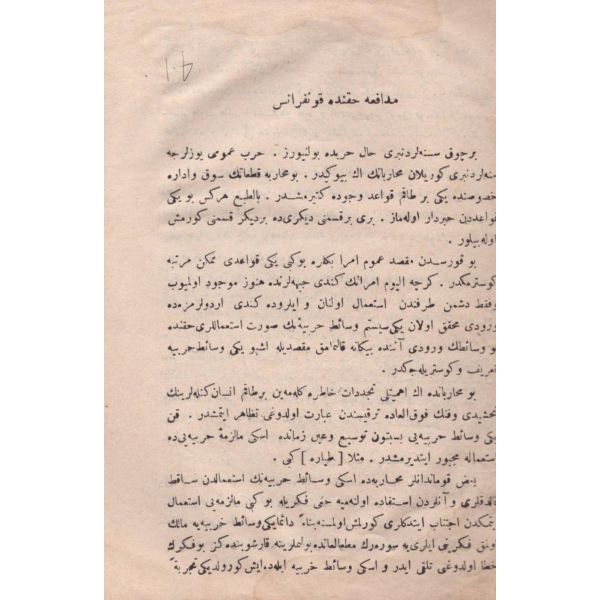 ١٠٤
مدافعه حقنده قونفرانس
برچوق سنه‌لردنبری حال حربده بولنیورز . حرب عمومی یوزلرجه
سنه‌لردنبری کوریلان محارباتك اك بیوکیدر . بو محاربه قطعاتك سوق واداره
خصوصنده یکی بر طاقم قواعد وجوده کتیرمشدر . بالطبع هرکس بو یکی
قواعددن خبردار اوله‌ماز . بری برقسمنی دیگری‌ده بردیکر قسمنی کورمش
اوله بیلور .
بو قورسدن مقصد عموم امرا بکلره بوکبی یکی قواعدی ممکن مرتبه
کوسترمکدر . کرچه الیوم امرانك کندی جبهه‌لرنده هنوز موجود اولمیوب
وفقط دشمن طرفندن استعمال اولنان و ایلروده کندی اردولرمزه‌ده
ورودی محقق اولان یکی سیستم وسائط حربیه‌نك صورت استعماللری حقنده
بو وسائطك ورودی آننده بیکانه قالمامق مقصدیله اشبو یکی وسائط حربیه
تعریف و کوستریله‌جکدر .
بو محارباتده اك اهمیتلی تجددات خاطره کله‌مین برطاقم انسان کتله‌لرینك
تحشیدی وفنك فوق‌العاده ترقیسندن عبارت اولدوغی تظاهر ایتمشدر . فن
یکی وسائط حربیه‌یی بسبتون توسیع وعین زمانده اسکی مالزمهٔ حربیه‌یی‌ده
استعماله مجبور ایتدیرمشدر . مثلا [ طیاره ] کبی .
بعض قوماندانلر محاربه‌ده اسکی وسائط حربیه‌نك استعمالدن ساقط
قالدقلری و آنلردن استفاده اولنه‌میه جغی فکریله بو کبی مالزمه‌یی استعمال
ایتمکدن اجتناب ایتدکلری کورلمش اولمسنه بناءً دائما یکی وسائط حربیه‌یه مالك
اولمق فکرینی ایلری‌یه سوره‌رك مطالعاتده بولنملرینه قارشو بنده‌کز بو فکرك
خطا اولدوغنی تلقی ایدر و اسکی وسائط حربیه ایله‌ده ایش کورولدیکی تجربةً